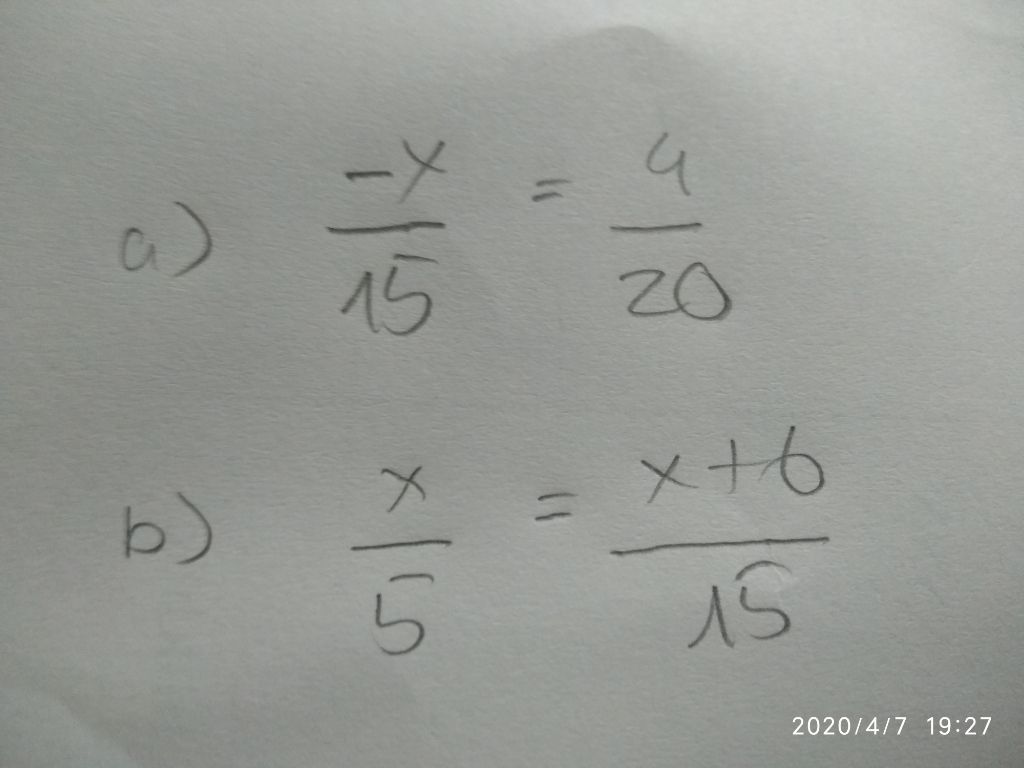 a) -x/15 = 4/20
b) x/5 = x+6/15
2020/4/7 19:27